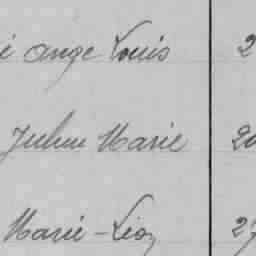 é ange Louis 2
Julien Marie 20
Marie-Léon 27